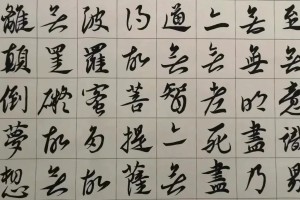 至無意識界
無無明盡乃
亦無老死盡
道無智亦無
得故菩提薩
波羅蜜多故
無罣礙故無
離顛倒夢想